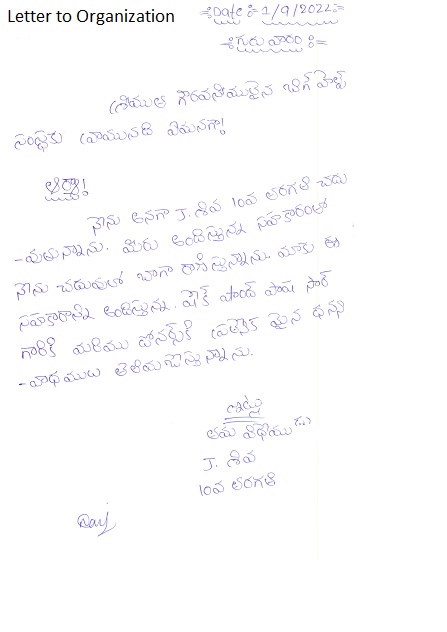 Letter to Organization
Date :- 1/9/2022
గురువారం
శ్రీయుత గౌరవనీయులైన బిగ్ హెల్ప్
సంస్థకు వ్రాయునది ఏమనగా!
ఆర్యా!
నేను అనగా J. శివ 10వ తరగతి చదు
-వుతున్నాను. మీరు అందిస్తున్న సహకారంతో
నేను చదువులో బాగా రాణిస్తున్నాను. మాకు ఈ
సహకారాన్ని అందిస్తున్న షేక్ చాంద్ పాషా సార్
గారికి మరియు డోనర్స్‌కి ప్రత్యేక మైన ధన్య
-వాధములు తెలియచేస్తున్నాను.
ఇట్లు
తమ విధేయుడు
J. శివ
10వ తరగతి